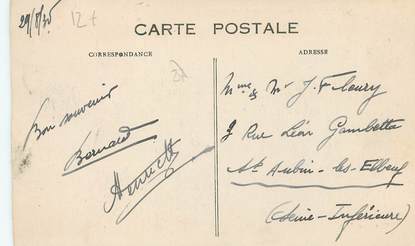 29/8/35
12+
CARTE POSTALE
CORRESPONDANCE
ADRESSE
Bon souvenir
Bernard
Henriette
Mme & Mr J. Fleury
3 Rue Léon Gambetta
St Aubin-les-Elbeuf
(Seine-Inférieure)